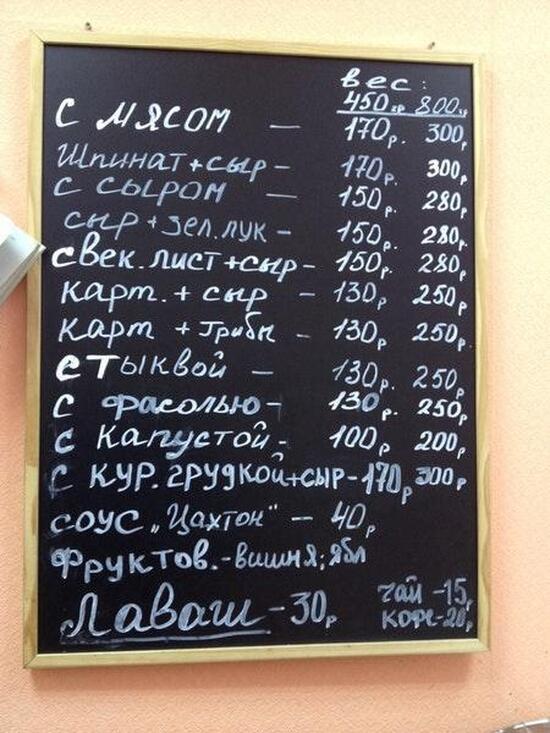 вес:
450гр 800гр
с мясом — 170р. 300р
Шпинат+сыр - 170р. 300р
с сыром — 150р. 280р
сыр + зел. лук - 150р. 280р.
свек. лист+сыр - 150р. 280р
карт. + сыр - 130р 250р
карт + грибы - 130р. 250р.
с тыквой — 130р. 250р
с фасолью - 130р. 250р
с капустой - 100р 200р
с кур. грудкой+сыр - 170р 300р
соус „Цахтон" — 40р
Фруктов. - вишня, ябл
Лаваш - 30р
чай - 15р
кофе - 20р